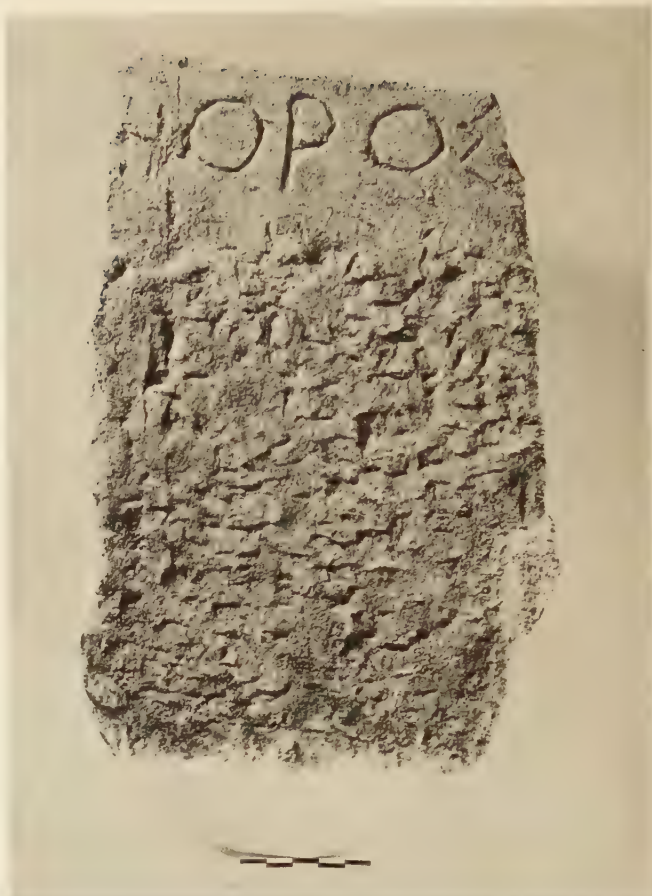 ΗΟΡΟΣ